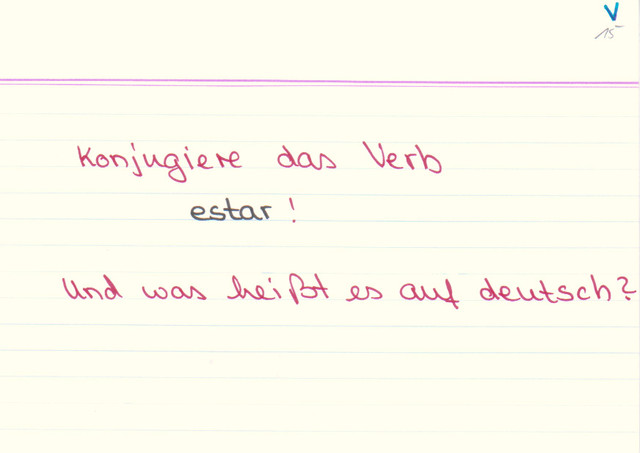 V
15
Konjugiere das Verb
estar!
Und was heißt es auf deutsch?